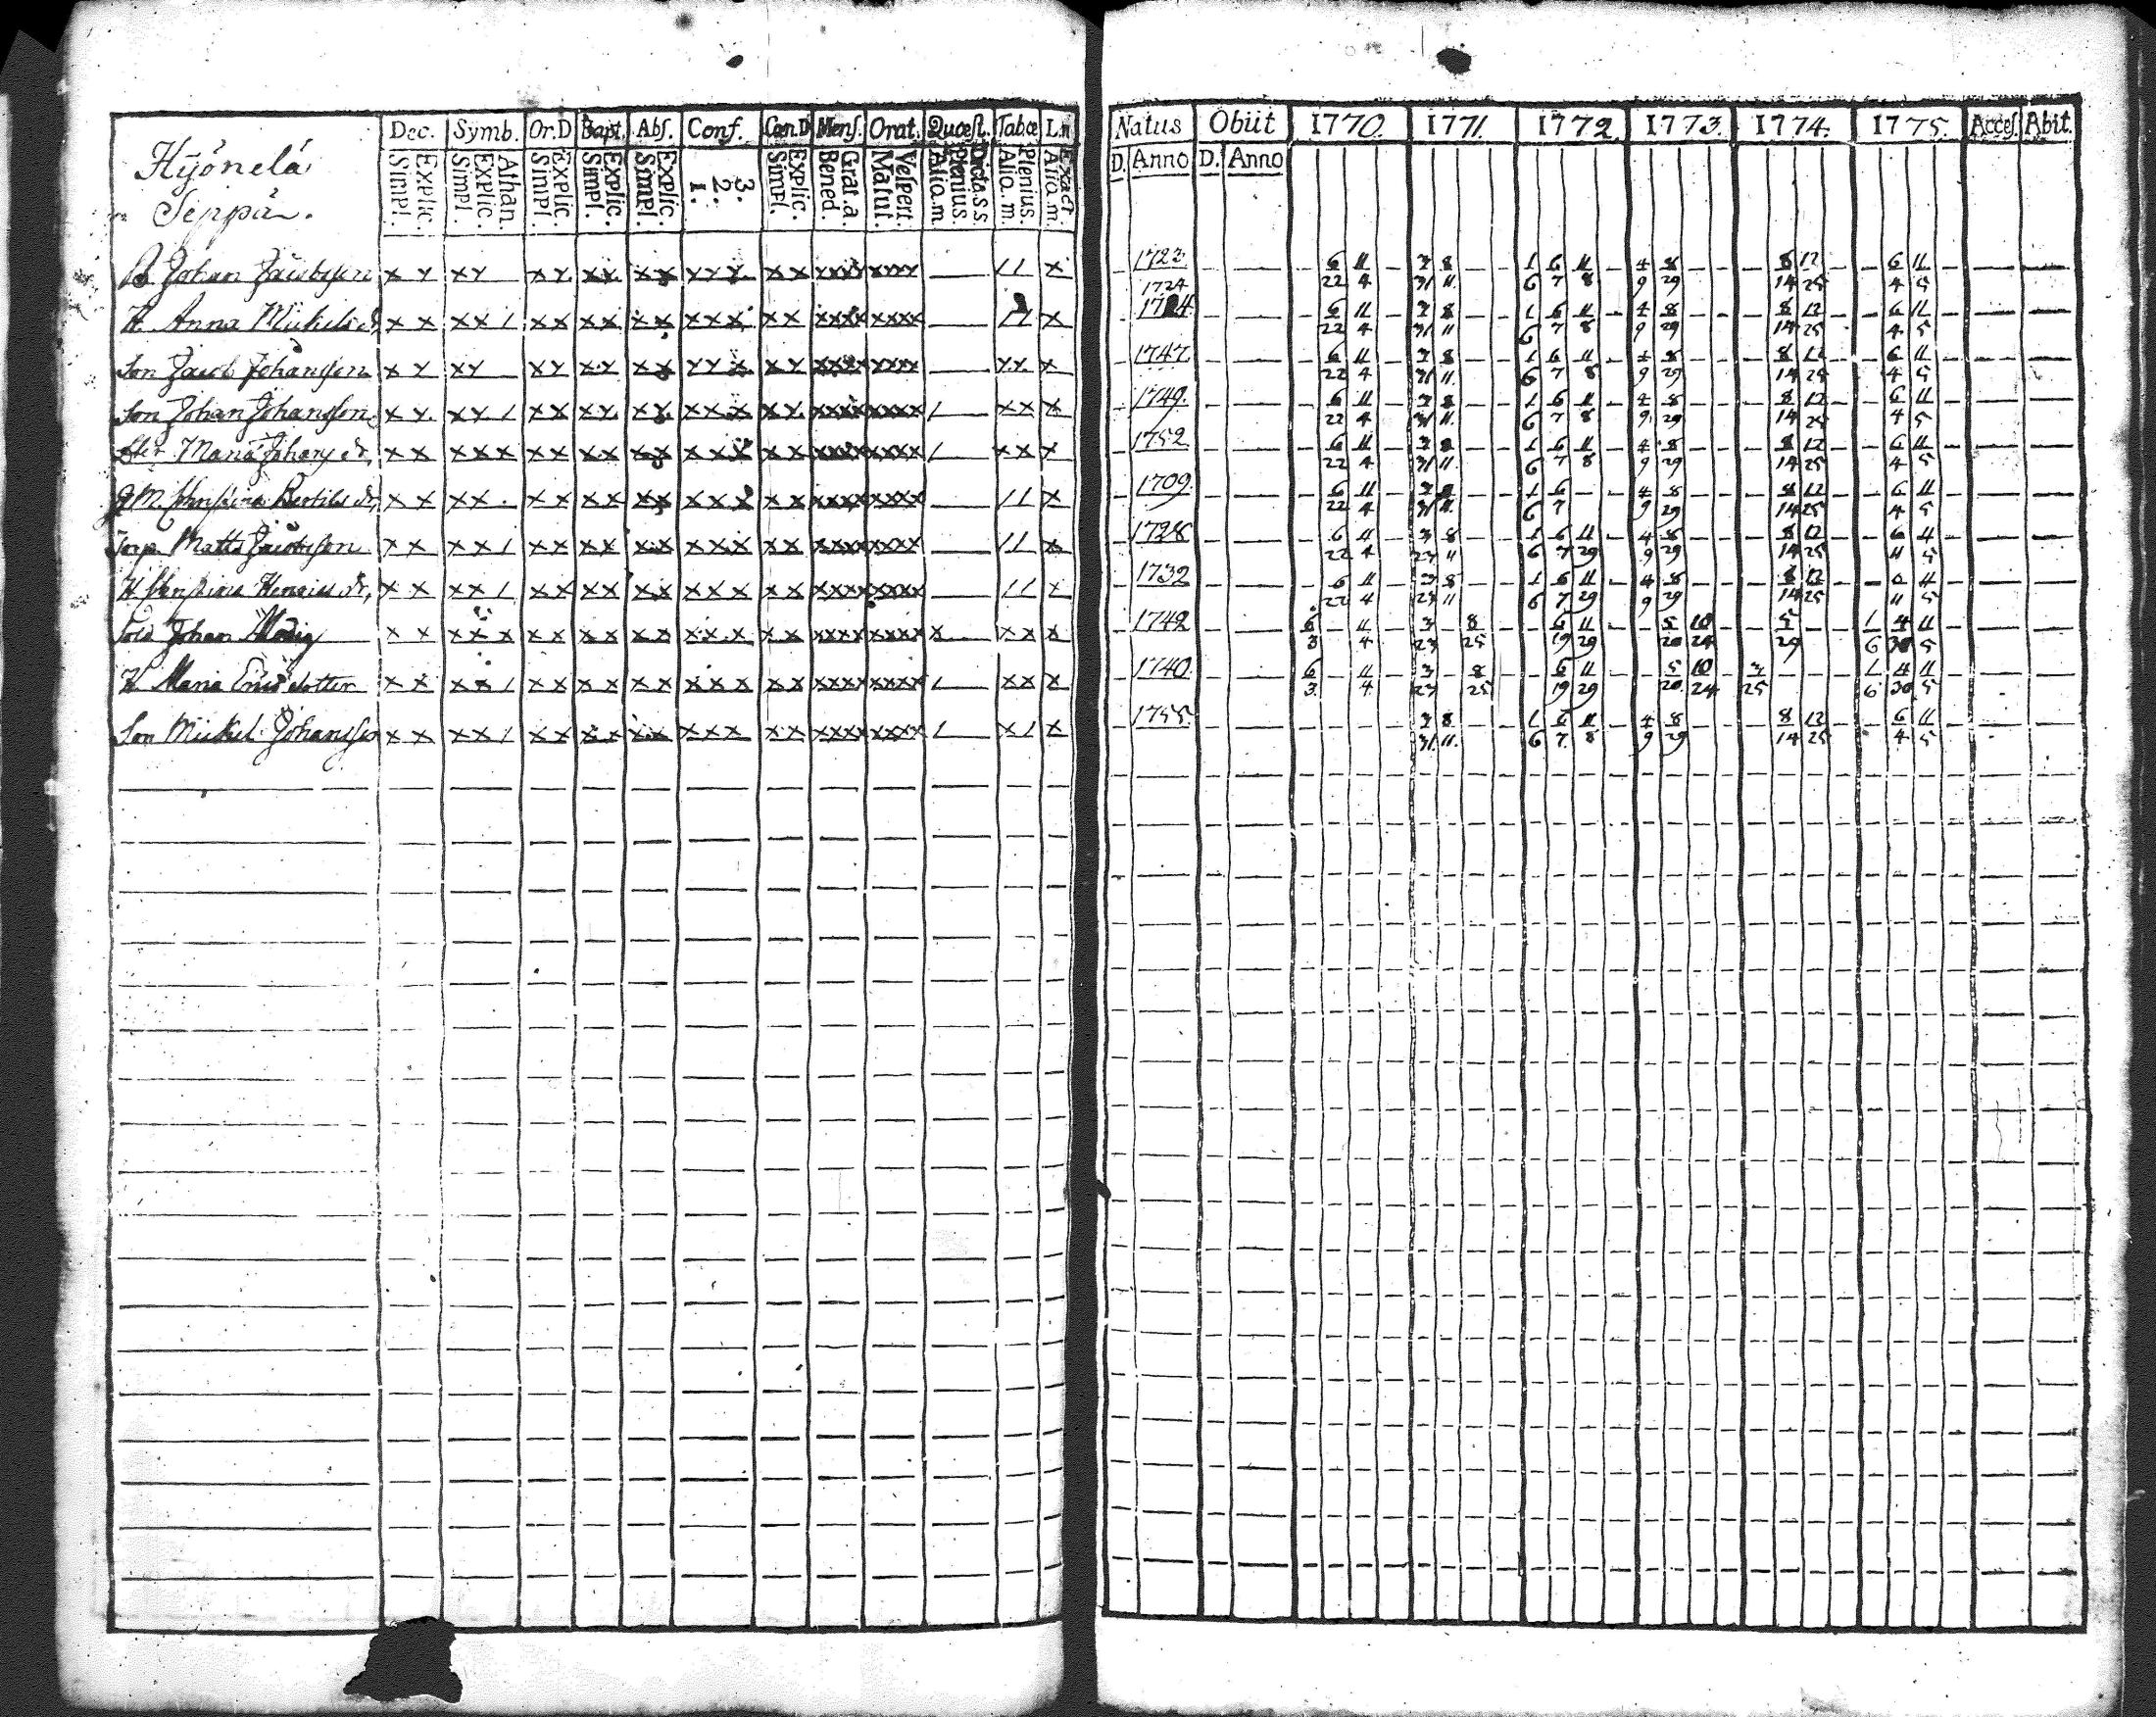 Hyönelä
Seppä.
Dec. Symb. Or.D Bapt. Abs. Conf. Cœn.D Mens. Orat. Quæst. Tab.œ L.n
Simpl. Explic. Simpl. Explic. Athan. Simpl. Explic. Simpl. Explic. Simpl. Explic. 1. 2. 3. Simpl. Explic. Bened. Grat.a Matut. Vespert. Alio.m Plenius. Dicta.s.s. Alio.m. Plenius. Alio.m. Exact.
Natus Obiit 1770. 1771. 1772. 1773. 1774. 1775. Acces. Abit.
D. Anno D. Anno
B. Johan Jacobsson x x x x x x x x x x x x x x x xxxx xxxx 1 1 x 1723 6 11 3 8 1 6 11 4 8 8 12 6 11
1724 22 4 31 11. 6 7 8 9 29 14 25 4 5
H. Anna Mickelsdr x x x x 1 x x x x x x x x x x x xxxx xxxx 1 1 x 6 11 3 8 1 6 11 4 8 8 12 6 11
22 4 31 11 6 7 8 9 29 14 25 4 5
Son Jacob Johansson x x x x x x x x x x x x x x x xxxx xxxx x x x 1747. 6 11 3 8 1 6 11 4 8 8 12 6 11
22 4 31 11. 6 7 8 9 29 14 25 4 5
Son Johan Johansson x x x x 1 x x x x x x x x x x x xxxx xxxx 1 x x x 1749. 6 11 3 8 1 6 11 4 8 8 12 6 11
22 4 31 11. 6 7 8 9 29 14 25 4 5
Maria Johansdr x x x x x x x x x x x x x x x x xxxx xxxx 1 x x x 1752 6 11 3 8 1 6 11 4 8 8 12 6 11
22 4 31 11. 6 7 8 9 29 14 25 4 5
Bertilsdr x x x x x x x x x x x x x x x xxxx xxxx 1 1 x 1709. 6 11 3 8 1 6 4 8 8 12 6 11
22 4 31 11. 6 7 9 29 14 25 4 5
Torp. Matts Jacobsson x x x x 1 x x x x x x x x x x x xxxx xxxx 1 1 x 1728 6 11 3 8 1 6 11 4 8 8 12 6 4
22 4 27 11 6 7 29 9 29 14 25 11 5
H. Henricsdr x x x x 1 x x x x x x x x x x x xxxx xxxx 1 1 x 1732 6 11 3 8 1 6 11 4 8 8 12 6 4
22 4 27 11 6 7 29 9 29 14 25 11 5
Sold Johan Modig x x x x x x x x x x x x x x x x xxxx xxxx x x x x 1742 6 11 3 8 6 11 5 10 5 1 4 11
3 4 27 25 19 29 20 24 29 6 30 5
H Maria Ericsdotter x x x x 1 x x x x x x x x x x x xxxx xxxx 1 x x x 1740. 6 11 3 8 6 11 5 10 3 1 4 11
3. 4 27 25 19 29 20 24 25 6 30 5
Son Mickel Johansson x x x x 1 x x x x x x x x x x x xxxx xxxx 1 x 1 x 1755. 3 8 1 6 11 4 8 8 12 6 11
31 11. 6 7 8 9 29 14 25 4 5